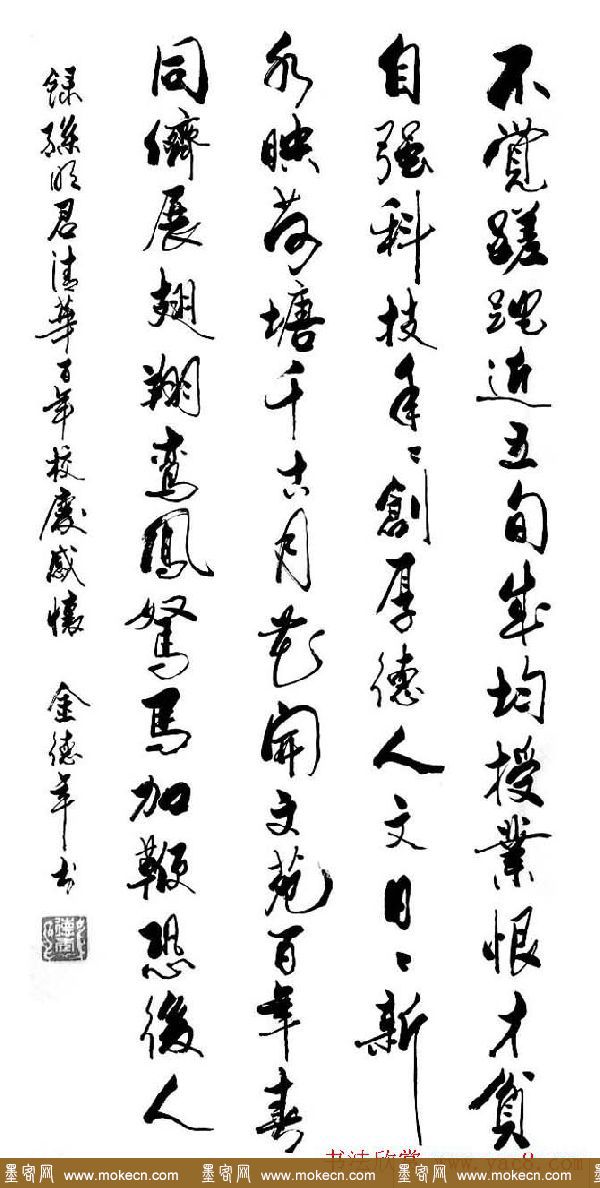 不覺蹉跎近五旬成均授業恨才貧
自强科技年々創厚德人文日々新
水映荷塘千古月花開文苑百年春
同儕展翅翔鸞鳳駑馬加鞭恐後人
錄孫明君清華百年校慶感懷 金德年书
书法欣赏 www.yac8.com
墨客网 www.mokecn.com 墨客网 www.mokecn.com 墨客网 www.mokecn.com